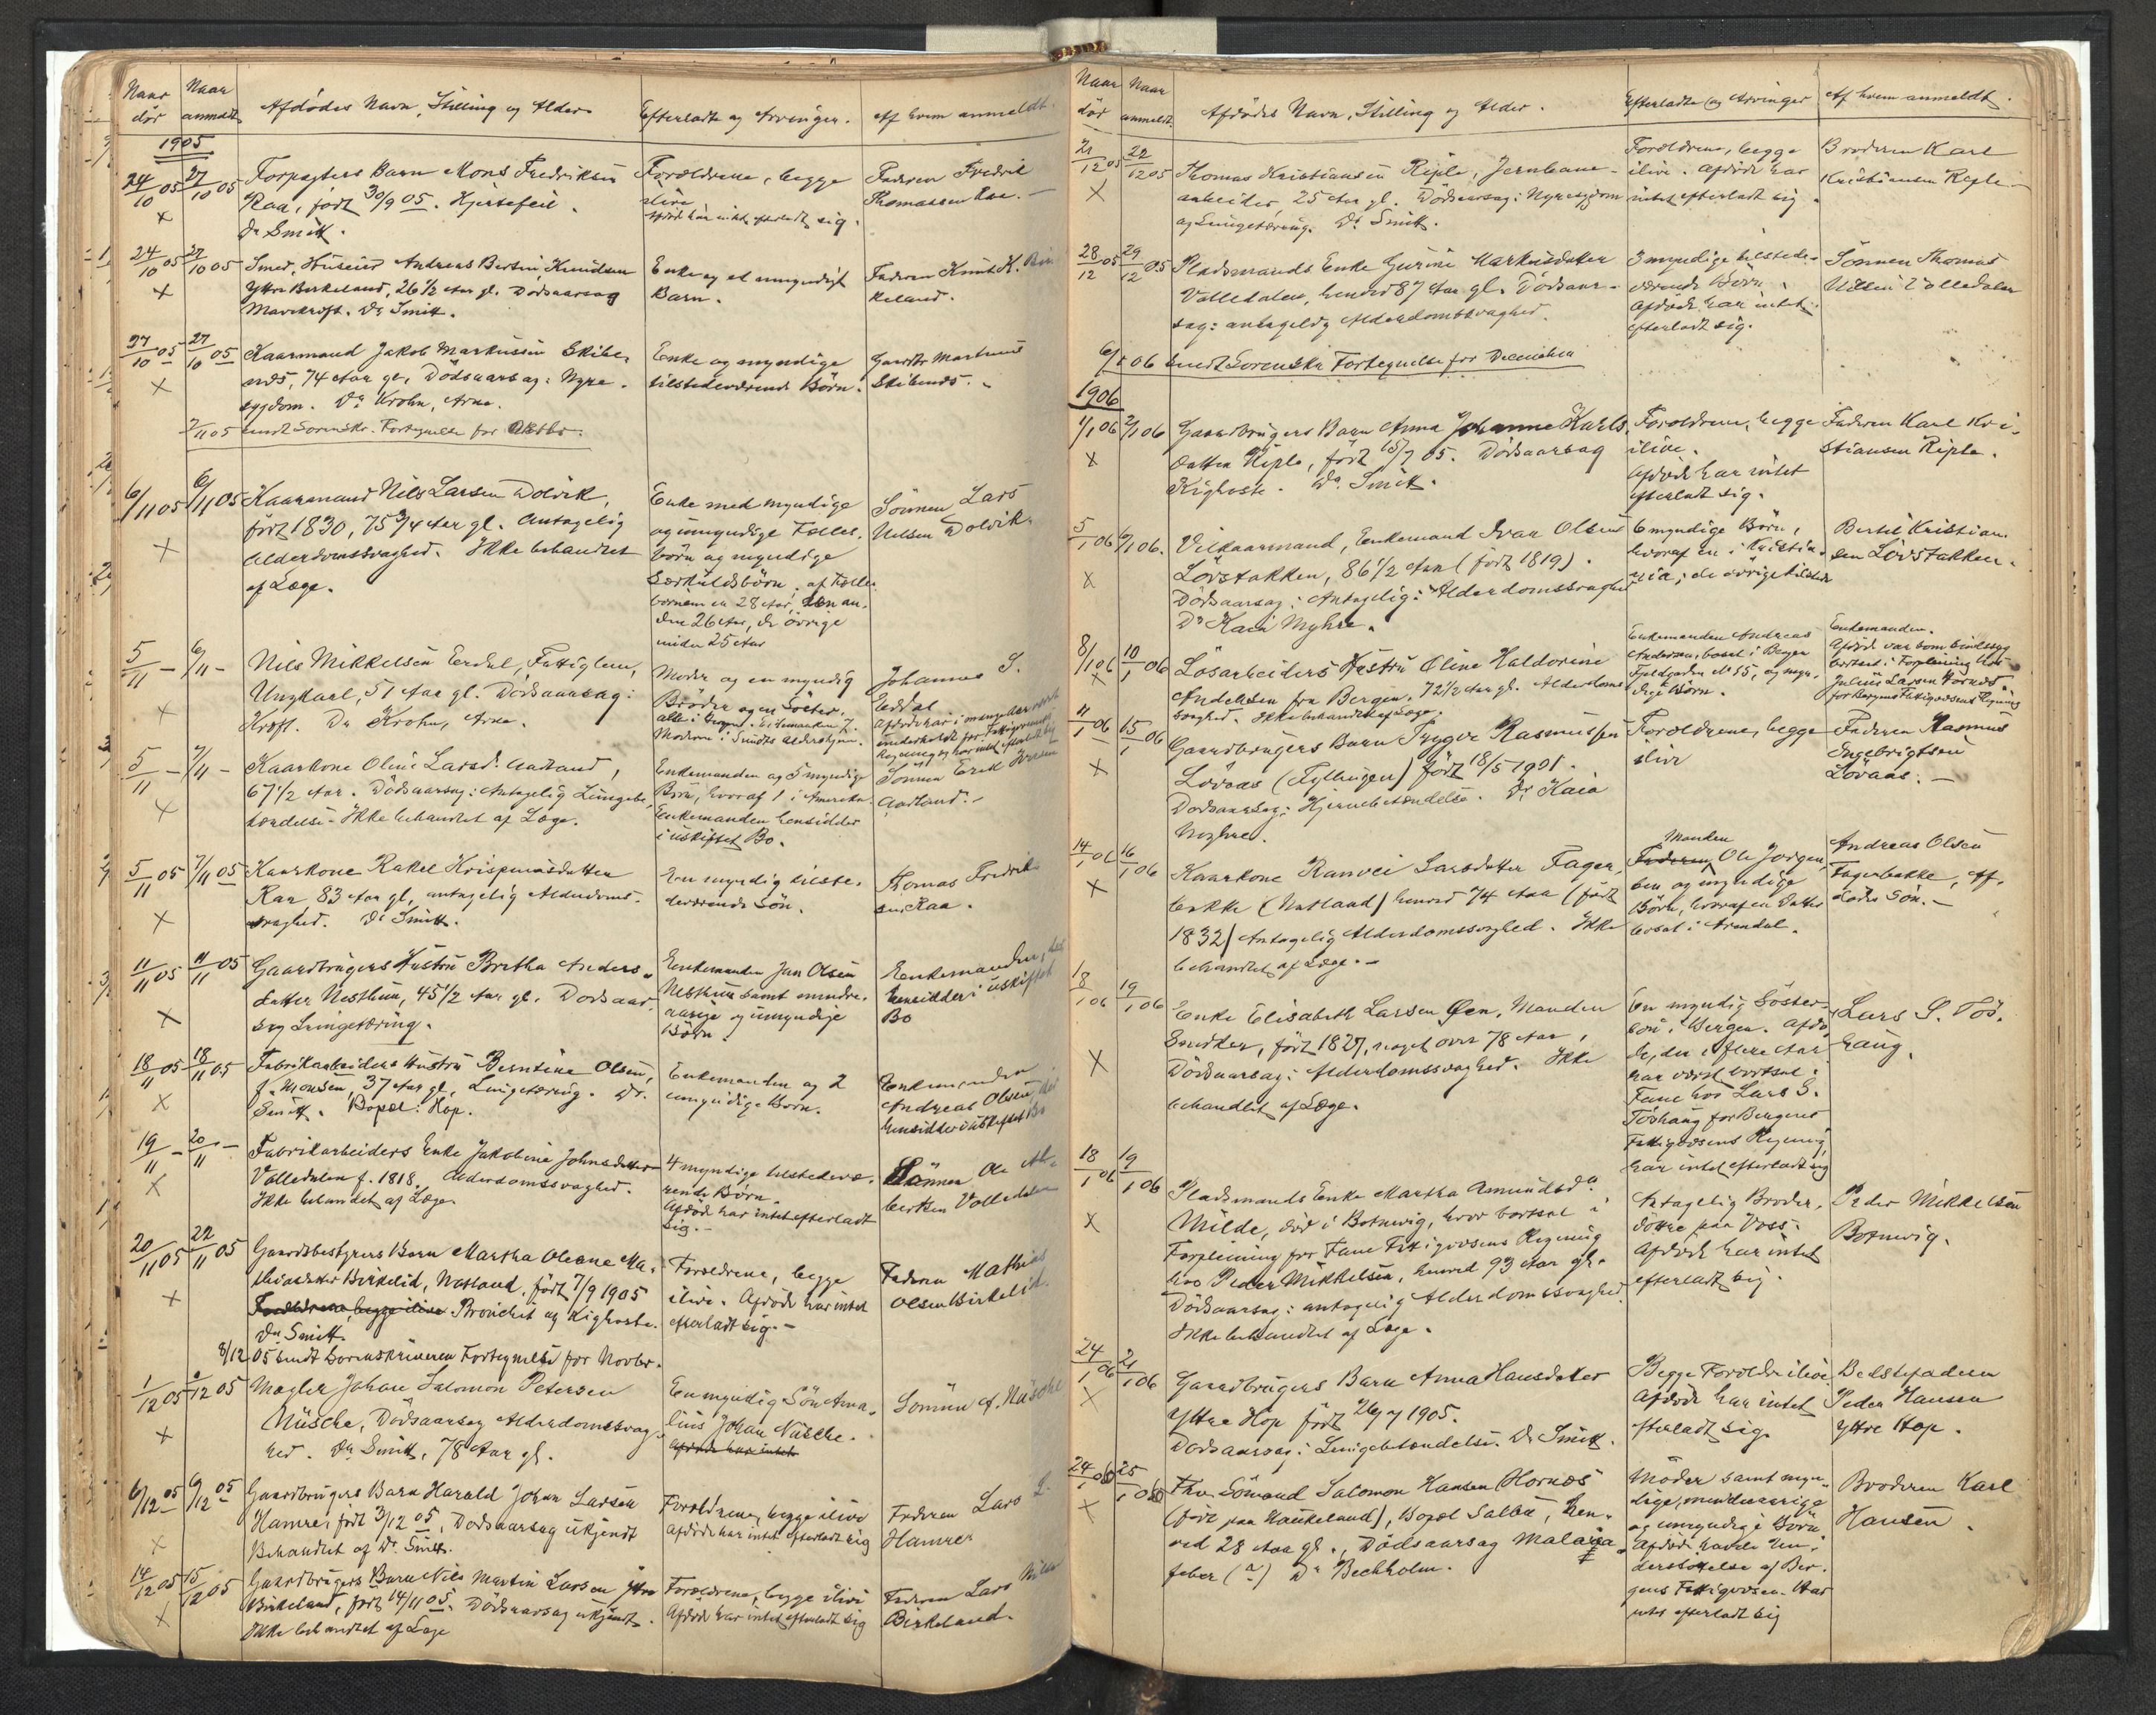 Naar dör
Naar anmeldt
Afdödes Navn, Stilling og Alder
Efterladte og Arvinger.
Af hvem anmeldt.
1905
24/10 05
27/10 05
Forpagters Barn Mons Fredriksen
Raa, født 30/9 05. Hjertefeil.
Dr Smitt.
Forældrene, begge
ilive
Afdøde har intet efterladt sig.
Faderen Fredrik
Thomassen Raa. —
24/10 05
27/10 05
Smed, Huseier Andreas Bertin Knudsen
Ytre Birkeland, 26 1/2 Aar gl. Dödsaarsag
Mavekræft. Dr Smitt.
Enke og et umyndigt
Barn.
Faderen Knut K. Bir
keland.
27/10 05
27/10 05
Kaarmand Jakob Markussen Skibe-
næs, 74 Aar gl., Dödsaarsag: Nyre-
sygdom. Dr Krohn, Arna.
Enke og myndige
tilstedeværende Börn.
Gaardbr Martinus
Skibenæs.
2/11 05 sendt Sorenskr. Fortegnelse for Oktbr.
6/11 05
6/11 05
Kaarmand Nils Larsen Dolvik,
født 1830, 75 3/4 Aar gl. Antagelig
Alderdomssvaghed. Ikke behandlet
af Læge.
Enke med myndige
og umyndige Fælles-
börn og myndige
Særkuldsbörn, af Fælles-
börnene en 28 Aar, den an-
den 26 Aar, de övrige
under 25 Aar
Sönnen Lars
Nilsen Dolvik.
5/11 —
6/11 —
Nils Mikkelsen Eedal, Fattiglem,
Ungkarl, 51 Aar gl. Dödsaarsag:
Kræft. Dr Krohn, Arna.
Moder og en myndig
Broder og en Söster.
alle i Bergen.
Moderen i Sundts Aldershjem.
Johannes S.
Eedal
Afdøde har i mange Aar været
underholdt for Fattigvæsenets
Regning og har intet efterladt sig
5/11 —
7/11 —
Kaarkone Oline Larsd. Aadland,
67 1/2 Aar. Dödsaarsag: Antagelig Lungebe-
tændelse. Ikke behandlet af Læge.
Enkemanden og 5 myndige
Börn, hvoraf 1 i Amerika.
Enkemanden hensidder
i uskiftet Bo.
Sönnen Erik Iversen
Aadland. —
5/11 05
7/11 05
Kaarkone Rakel Krispinusdatter
Raa, 83 Aar gl, antagelig Alderdoms-
svaghed. Dr Smitt.
En myndig tilste-
deværende Sön.
Thomas Fredrik-
sen Raa.
11/11 05
11/11 05
Gaardbrugers Hustru Brita Anders-
datter Nesttun, 45 1/2 Aar gl. Dödsaar-
sag Lungetæring.
Enkemanden Jan Olsen
Nesttun samt mindre-
aarige og umyndige
Börn.
Enkemanden, der
hensidder i uskiftet
Bo
18/11 05
18/11 05
Fabrikarbeiders Hustru Berntine Olsen,
f. Monsen, 37 Aar gl., Lungetæring. Dr.
Smitt. Bopæl: Hop.
Enkemanden og 2
umyndige Born.
Enkemanden
Andreas Olsen der
hensidder i uskiftet Bo
19/11 —
20/11 —
Fabrikarbeiders Enke Jakobine Johnsdatter
Valledalen f. 1818. Alderdomssvaghed.
Ikke behandlet af Læge
4 myndige tilstedevæ-
rende Börn.
Afdöde har intet efterladt
sig. —
Sönnen Ole Al-
bertsen Valledalen
20/11 05
22/11 05
Gaardsbestyrers Barn Martha Oleane Ma-
thiasdatter Birkelid, Natland, født 7/9 1905
Forældrene, begge ilive Bronchit og Kighoste.
Dr Smitt.
Forældrene, begge
ilive. Afdöde har intet
efterladt sig. —
Faderen Mathias
Olsen Birkelid.
8/12 05 sendt Sorenskriveren Fortegnelse for Novbr.
1/12 05
2/12 05
Mægler Johan Salomon Petersen
Nüsche, Dødsaarsag Alderdomssvag-
hed. Dr Smitt, 78 Aar gl.
En myndig Sön Ama-
lius Johan Nüsche.
Afdöde har intet
Sönnen A. Nüsche
6/12 05
6/12 05
Gaardbrugers Barn Harald Johan Larsen
Hamre, födt 3/12 05, Dødsaarsag ukjendt
Behandlet af Dr Smitt.
Forældrene, begge ilive
Afdöde har intet efterladt sig
Faderen Lars L.
Hamre
14/12 05
15/12 05
Gaardbrugers Barn Nils Martin Larsen Ytre
Birkeland, født 14/11 05. Dödsaarsag ukjendt.
Ikke behandlet af Læge
Forældrene, begge ilive
Afdöde har intet efterladt sig
Faderen Lars Nilsen
Birkeland.
Naar dör
Naar anmeldt.
Afdödes Navn, Stilling og Alder.
Efterladte og Arvinger
Af hvem anmeldt.
21/12 05
22/12 05
Thomas Kristiansen Riple, Jernbane-
arbeider 25 Aar gl. Dödsaarsag: Nyresygdom
og Lungetæring. Dr Smitt.
Forældrene, begge
ilive. Afdöde har
intet efterladt sig.
Broderen Karl
Kristiansen Riple
28/12 05
29/12 05
Pladsmands Enke Gurine Markusdatter
Valledalen, henved 87 Aar gl. Dödsaar-
sag: antagelig Alderdomssvaghed.
3 myndige tilstede-
værende Börn.
Afdöde har intet
efterladt sig.
Sönnen Thomas
Nilsen Valledalen
6/1 06 sendt Sorenskr Fortegnelse for December
1906
1/1 06
2/1 06
Gaardbrugers Barn Anna Johanne Karls-
datter Riple, född 15/7 05. Dödsaarsag
Kighoste. Dr Smitt.
Forældrene, begge
ilive.
Afdøde har intet
efterladt sig.
Faderen Karl Kri-
stiansen Riple.
5/1 06
6/1 06.
Vilkaarmand, Enkemand Ivar Olsen
Lövstakken, 86 1/2 Aar (født 1819).
Dödsaarsag: Antagelig: Alderdomssvaghed
Dr Kaia Myhre.
6 myndige Börn,
hvoraf en i Kristia-
nia, de övrige tilstede
Bertel Kristian-
sen Lövstakken.
8/1 06
10/1 06
Lösarbeiders Hustru Oline Haldorine
Andersen fra Bergen. 72 1/2 Aar gl. Alderdoms-
svaghed. Ikke behandlet af Læge.
Enkemanden Andreas
Andersen, bosat i Bergen
No 15, og myn-
dige Börn.
Enkemanden.
Afdöde var som sindssyg
bortsat i Forpleining hos
Julius Larsen Hornæs
for Bergens Fattigvæsens Regning
11/1 06
15/1 06
Gaardbrugers Barn Trygve Rasmussen
Lövaas (Fyllingen) født 18/5 1901.
Dodsaarsag: Hjernebetændelse. Dr Kaia
Myhre.
Forældrene, begge
ilive
Faderen Rasmus
Engebrigtsen
Lövaas. —
14/1 06
16/1 06
Kaarkone Ranvei Larsdatter Fager-
bakke (Natland) henved 74 Aar (født
1832) Antagelig Alderdomssvaghed. Ikke
behandlet af Læge. —
Manden
Faderen Ole Jörgen-
sen og myndige
Börn, hvoraf en Datter
bosat i Arendal.
Andreas Olsen
Fagerbakke, Af-
dødes Sön. —
18/1 06
19/1 06
Enke Elisabeth Larsen Øen, Manden
Snedker, född 1827, noget over 78 Aar,
Dödsaarsag: Alderdomssvaghed. Ikke
behandlet af Læge.
En myndig Söster-
sön i Bergen. Afdö-
de, der i flere Aar
har været bortsat i
Fane hos Lars S.
Töshaug for Bergens
Fattigvæsens Regning
har intet efterladt sig
Lars S. Tös-
haug.
18/1 06
19/1 06
Pladsmands Enke Martha Amundsdr
Milde, död i Botnevig, hvor bortsat i
Forpleining for Fane Fattigvæsens Regning
hos Peder Mikkelsen, henved 93 Aar gl.
Dödsaarsag: antagelig Alderdomssvaghed
Ikke behandlet af Læge.
Antagelig Broder-
döttre paa Voss.
Afdøde har intet
efterladt sig.
Peder Mikkelsen
Botnevig.
24/1 06
Gaardbrugers Barn Anna Hansdatter
Ytre Hop född 26/7 1905.
Dødsaarsag: Lungebetændelse. Dr Smitt.
Begge Forældre ilive
Afdöde har intet
efterladt sig.
Bedstefaderen
Peder Hansen
Ytre Hop.
24/1 06
25/1 06
Fhv. Sömand Salomon Hansen Hornæs
(født paa Haukeland), Bopæl Salbu, hen-
ved 28 Aar gl., Dødsaarsag Malaria-
feber (?) Dr Beckholm.
Moder samt myn-
dige, mindreaarige
og umyndige
Afdöde havde Un-
derstöttelse af Ber-
gens Fattigvæsen. Har
intet efterladt sig
Broderen Karl
Hansen.